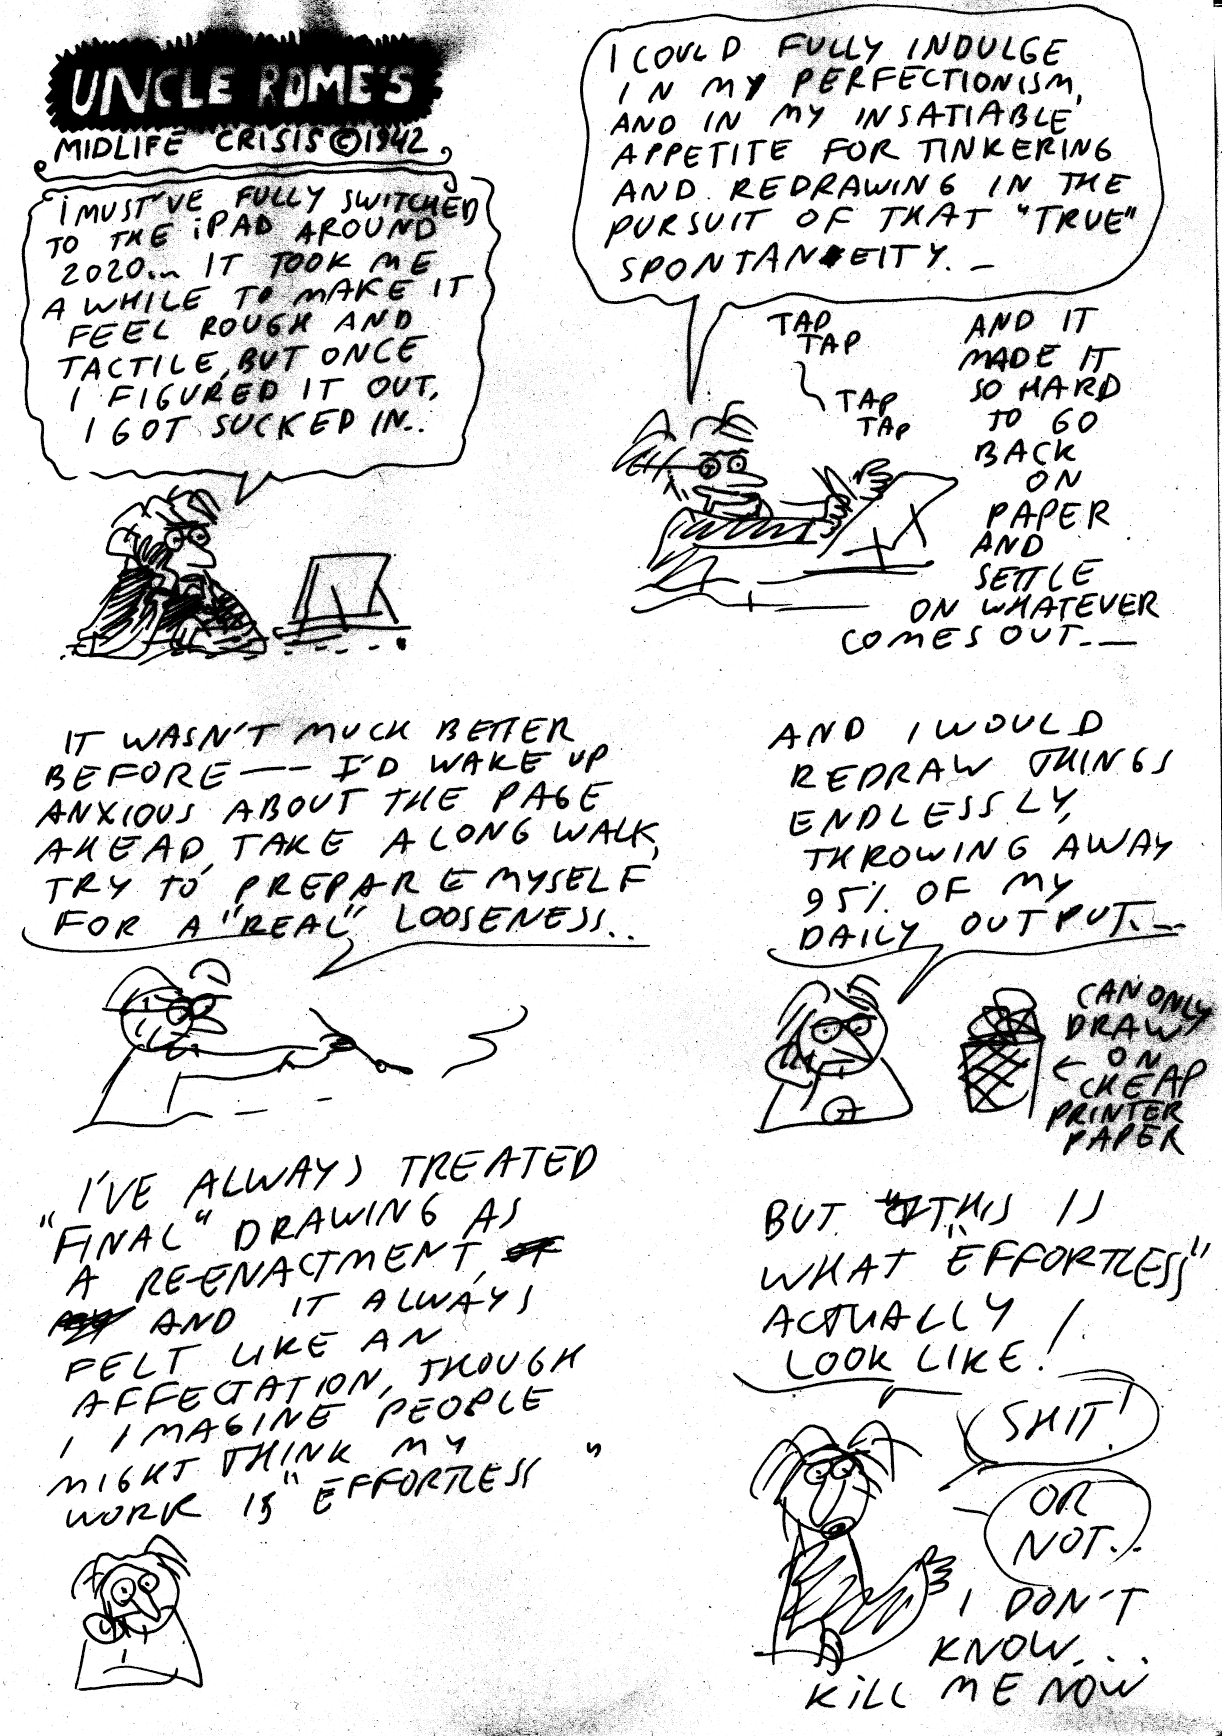 UNCLE ROME'S
MIDLIFE CRISIS ©1942
I MUST'VE FULLY SWITCHED
TO THE iPAD AROUND
2020... IT TOOK ME
A WHILE TO MAKE IT
FEEL ROUGH AND
TACTILE, BUT ONCE
I FIGURED IT OUT,
I GOT SUCKED IN..
I COULD FULLY INDULGE
IN MY PERFECTIONISM,
AND IN MY INSATIABLE
APPETITE FOR TINKERING
AND REDRAWING IN THE
PURSUIT OF THAT "TRUE"
SPONTANEITY. _
TAP
TAP
TAP
TAP
AND IT
MADE IT
SO HARD
TO GO
BACK
ON
PAPER
AND
SETTLE
ON WHATEVER
COMES OUT.__
IT WASN'T MUCH BETTER
BEFORE —— I'D WAKE UP
ANXIOUS ABOUT THE PAGE
AHEAD, TAKE A LONG WALK,
TRY TO PREPARE MYSELF
FOR A "REAL" LOOSENESS..
AND I WOULD
REDRAW THINGS
ENDLESSLY,
THROWING AWAY
95% OF MY
DAILY OUTPUT.._
CAN ONLY
DRAW
← ON
CHEAP
PRINTER
PAPER
I'VE ALWAYS TREATED
"FINAL" DRAWING AS
A RE-ENACTMENT,
AND IT ALWAYS
FELT LIKE AN
AFFECTATION, THOUGH
I IMAGINE PEOPLE
MIGHT THINK MY
WORK IS "EFFORTLESS"
BUT THIS IS
WHAT "EFFORTLESS"
ACTUALLY
LOOK LIKE!
SHIT!
OR
NOT..
I DON'T
KNOW...
KILL ME NOW